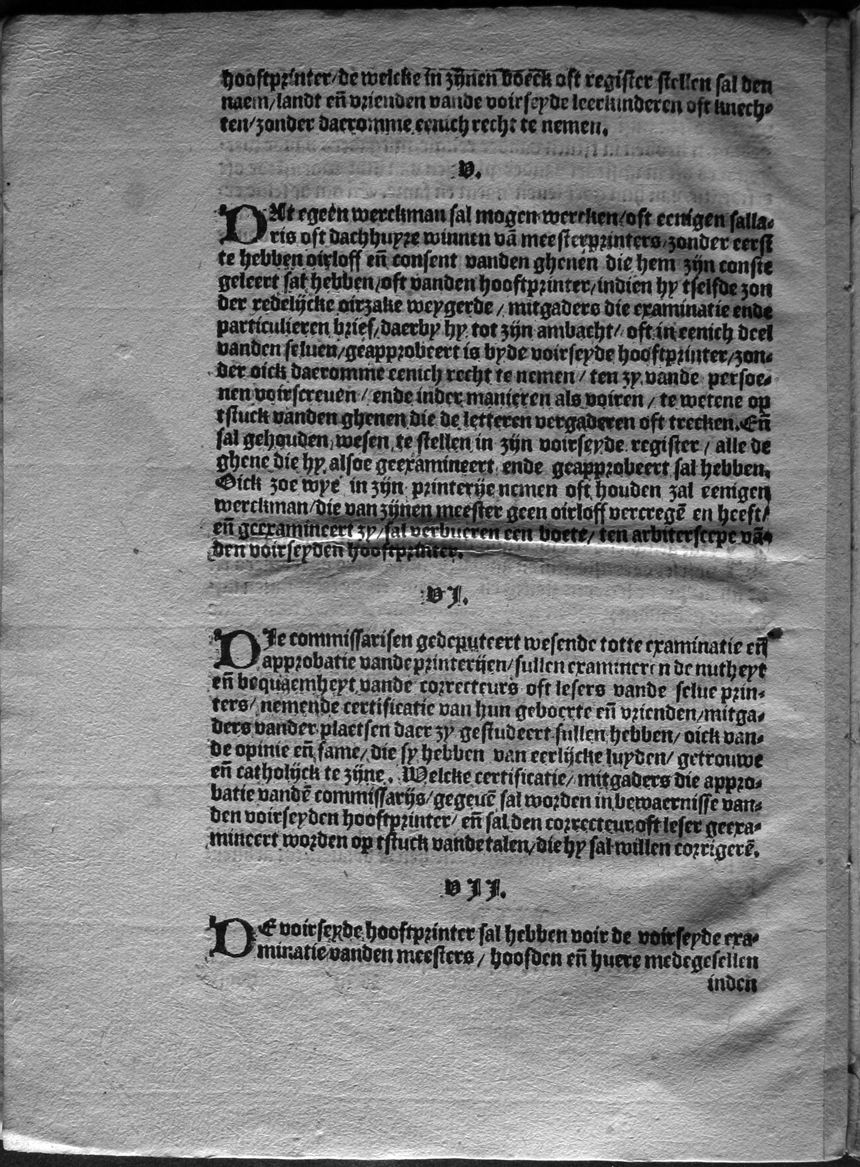 hooftprinter/de welcke in zijnen boeck oft register stellen sal den
naem/landt eñ vrienden vande voirseyde leerkinderen oft knech-
ten/zonder daeromme eenich recht te nemen.
V.
DAt egeen werckman sal mogen wercken/oft eenigen salla-
ris oft dachhuyre winnen vā meesterprinters/zonder eerst
te hebben oirloff eñ consent vanden ghenen die hem zijn conste
geleert sal hebben/oft vanden hooftprinter/indien hy tselfde zon
der redelijcke oirzake weygerde/ mitgaders die examinatie ende
particulieren brief/daerby hy tot zijn ambacht/ oft in eenich deel
vanden seluen/geapprobeert is byde voirseyde hooftprinter/zon-
der oick daeromme eenich recht te nemen/ ten zy vande persoe-
nen voirscreuen/ ende inder manieren als voiren/ te wetene op
tstuck vanden ghenen die de letteren vergaderen oft trecken. Eñ
sal gehouden wesen te stellen in zijn voirseyde register/ alle de
ghene die hy alsoe geexamineert ende geapprobeert sal hebben.
Oick zoe wye in zijn printerije nemen oft houden zal eenigen
werckman/die van zijnen meester geen oirloff vercregē en heeft/
eñ geexamineert zy/sal verbueren een boete/ ten arbiterscepe vā-
den voirseyden hooftprinter.
VI.
DIe commissarisen gedeputeert wesende totte examinatie eñ
approbatie vande printerijen/sullen examineren de nutheyt
eñ bequaemheyt vande correcteurs oft lesers vande selue prin-
ters/ nemende certificatie van hun geboerte eñ vrienden/mitga-
ders vander plaetsen daer zy gestudeert sullen hebben/ oick van-
de opinie eñ fame/ die sy hebben van eerlijcke luyden/ getrouwe
eñ catholijck te zijne. Welcke certificatie/ mitgaders die appro-
batie vandē commissarijs/gegeuē sal worden in bewaernisse van-
den voirseyden hooftprinter/ eñ sal den correcteur oft leser geexa-
mineert worden op tstuck vande talen/die hy sal willen corrigerē.
VII.
DE voirseyde hooftprinter sal hebben voir de voirseyde exa-
minatie vanden meesters/ hoofden eñ huere medegesellen
inden